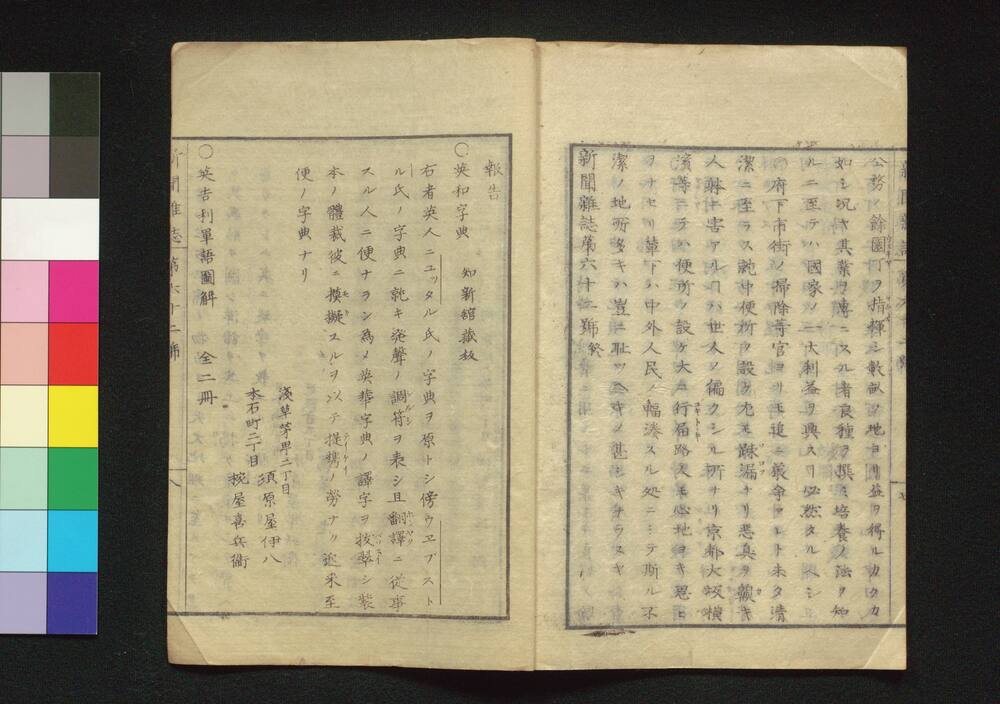 公務ノ餘園丁ヲ指揮シ數畝ノ地ヨリ益ヲ得ルカタカ
如シ況ヤ其業ヲ專ニスル者良種ヲ撰ミ培養ノ法ヲ知
ルニ至テハ國家ノ一大利益ヲ興スヿ必然タルヘシ
府下市街ノ掃除等官ヨリモ追々嚴命アレト未タ清
潔ニ至ラス就中便所ヲ設ル尤モ疎漏ナリ悪臭ヲ
人躰ニ害アルヿハ世人ノ偏ク知ル所ナリ京都大坂横
濱等ニテハ便所ヲ設ケ大ニ行届路人モ心地ヨキ思ヒ
ヲナセリ輦下ハ中外人民ノ輻湊スル処ニシテ斯ル不
潔ノ地所多キハ豈ニ恥ツヘキノ甚シキナラスヤ
新聞雜誌第六十二號終
報告
〇英和字典 知新舘藏板
右者英人ニユッタル氏ノ字典ヲ原トシ傍ウヱブスト
ル氏ノ字典ニ就キ発聲ノ調符ヲ表シ且翻譯ニ從事
スル人ニ便ナラン為メ英華字典ノ譯字ヲ抜翠シ装
本ノ體裁彼ニ摸擬スルヲ以テ提携ノ勞ナク近来至
便ノ字典ナリ
淺草茅町二丁目
須原屋伊八
本石町二丁目
椀屋喜兵衞
〇英吉利單語圖解 全二冊
新聞雜誌 第六十二號 八